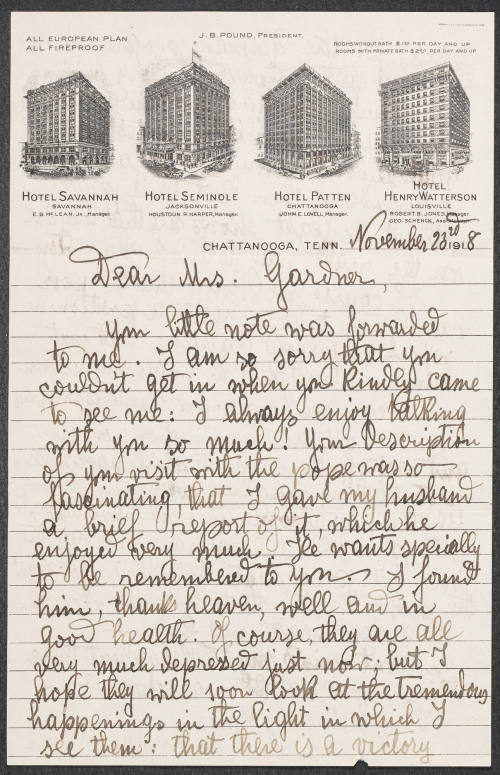 ALL EUROPEAN PLAN
ALL FIREPROOF
J. B. POUND, PRESIDENT.
ROOMS WITHOUT BATH $1.50 PER DAY AND UP
ROOMS WITH PRIVATE BATH $2.00 PER DAY AND UP
HOTEL SAVANNAH
SAVANNAH
E. S. McLEAN, Jr., Manager.
HOTEL SEMINOLE
JACKSONVILLE
HOUSTOUN R. HARPER, Manager.
HOTEL PATTEN
CHATTANOOGA
JOHN E. LOVELL, Manager.
HOTEL
HENRY WATTERSON
LOUISVILLE
ROBERT B. JONES, Manager
GEO. SCHENCK,
CHATTANOOGA, TENN. November 23rd 1918
Dear Mrs. Gardner,
Your little note was forwarded
to me. I am so sorry that you
couldn't get in when you kindly came
to see me: I always enjoy talking
with you so much! Your description
of your visit with the pope was so
fascinating, that I gave my husband
a brief report of it, which he
enjoyed very much. He wants specially
to be remembered to you. I found
him, thanks heaven, well and in
good health. Of course, they are all
very much depressed just now; but I
hope they will soon look at the tremendous
happenings in the light in which I
see them: that there is a victory